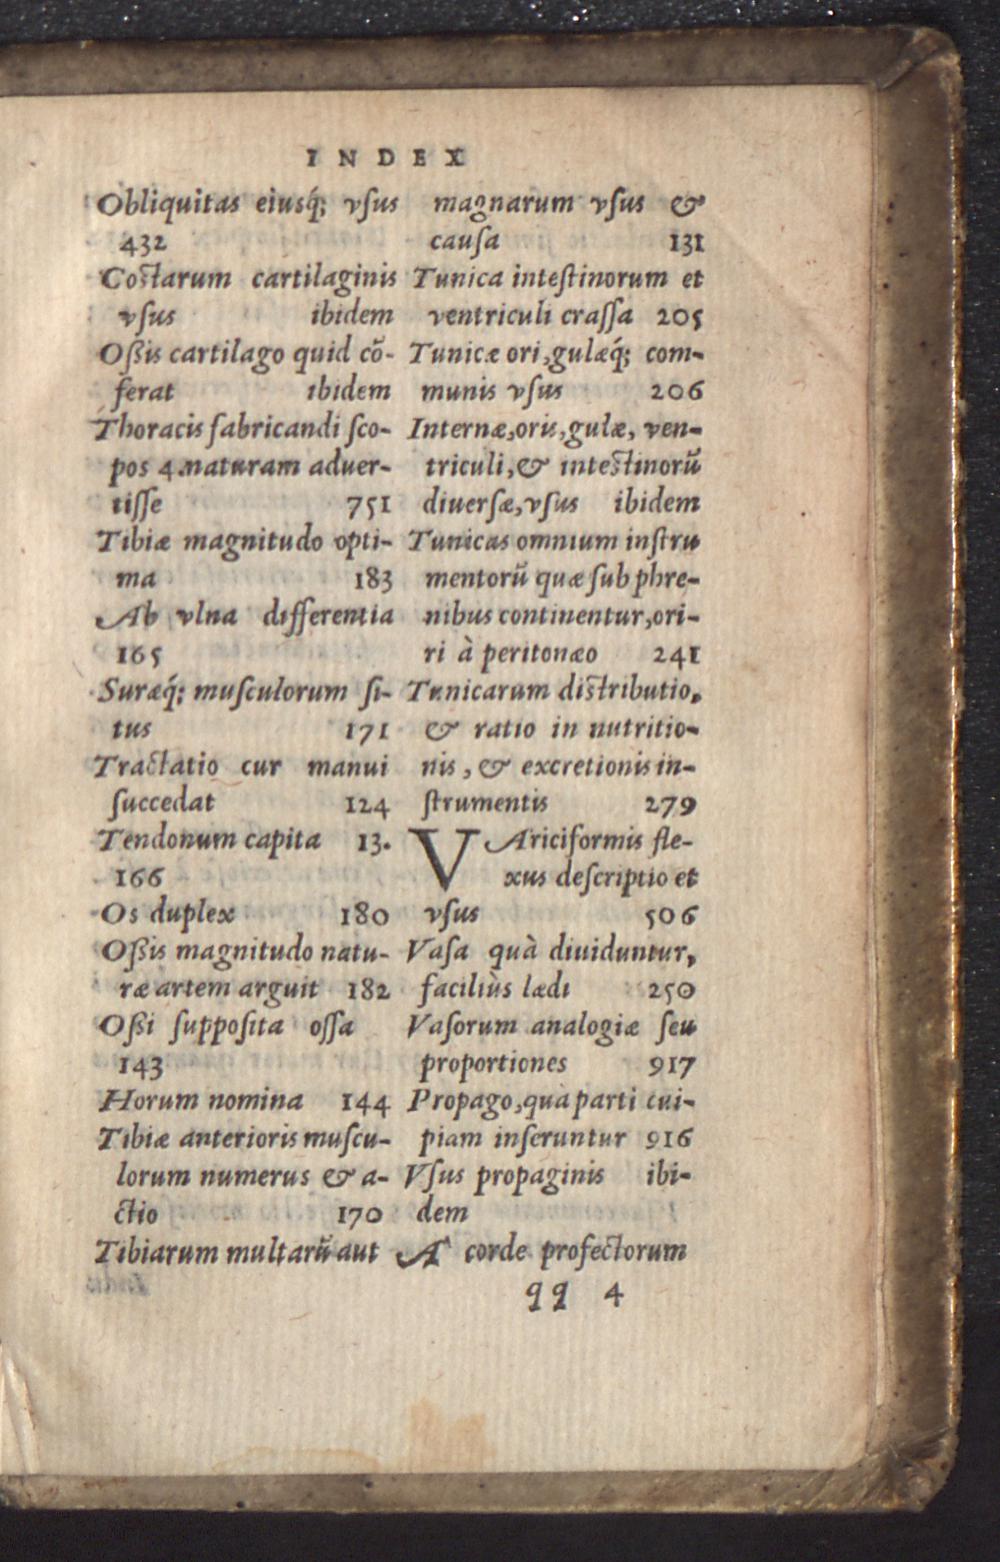 INDEX
Obliquitas eiusq́; vsus
432
Costarum cartilaginis
vsus ibidem
Oßis cartilago quid cō-
ferat ibidem
Thoracis fabricandi sco-
pos 4. naturam aduer-
tisse 751
Tibiæ magnitudo opti-
ma 183
Ab vlna differentia
165
Suræq́; musculorum si-
tus 171
Tractatio cur manui
succedat 124
Tendonum capita 13.
166
Os duplex 180
Oßis magnitudo natu-
ræ artem arguit 182
Oßi supposita ossa
143
Horum nomina 144
Tibiæ anterioris muscu-
lorum numerus & a-
ctio 170
Tibiarum multarū aut
magnarum vsus &
causa 131
Tunica intestinorum et
ventriculi crassa 205
Tunicæ ori, gulæq́; com-
munis vsus 206
Internæ, oris, gulæ, ven-
triculi, & intestinorū
diuersæ, vsus ibidem
Tunicas omnium instru
mentorū quæ sub phre-
nibus continentur, ori-
ri à peritonæo 241
Tunicarum distributio,
& ratio in nutritio-
nis, & excretionis in-
strumentis 279
VAriciformis fle-
xus descriptio et
vsus 506
Vasa quà diuiduntur,
faciliùs lædi 250
Vasorum analogiæ seu
proportiones 917
Propago, qua parti cui-
piam inseruntur 916
Vsus propaginis ibi-
dem
A corde profectorum
qq 4